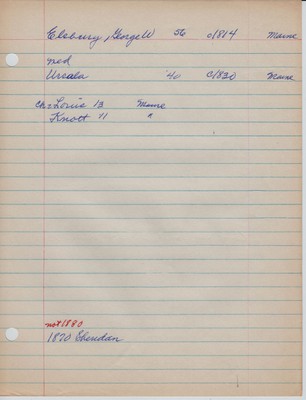 Elsbury, George W 56 c/1814 Maine
med
Ursala 40 c/1830 Maine
Ch: Louis 13 Maine
Knott 11 "
not 1880
1870 Sheridan